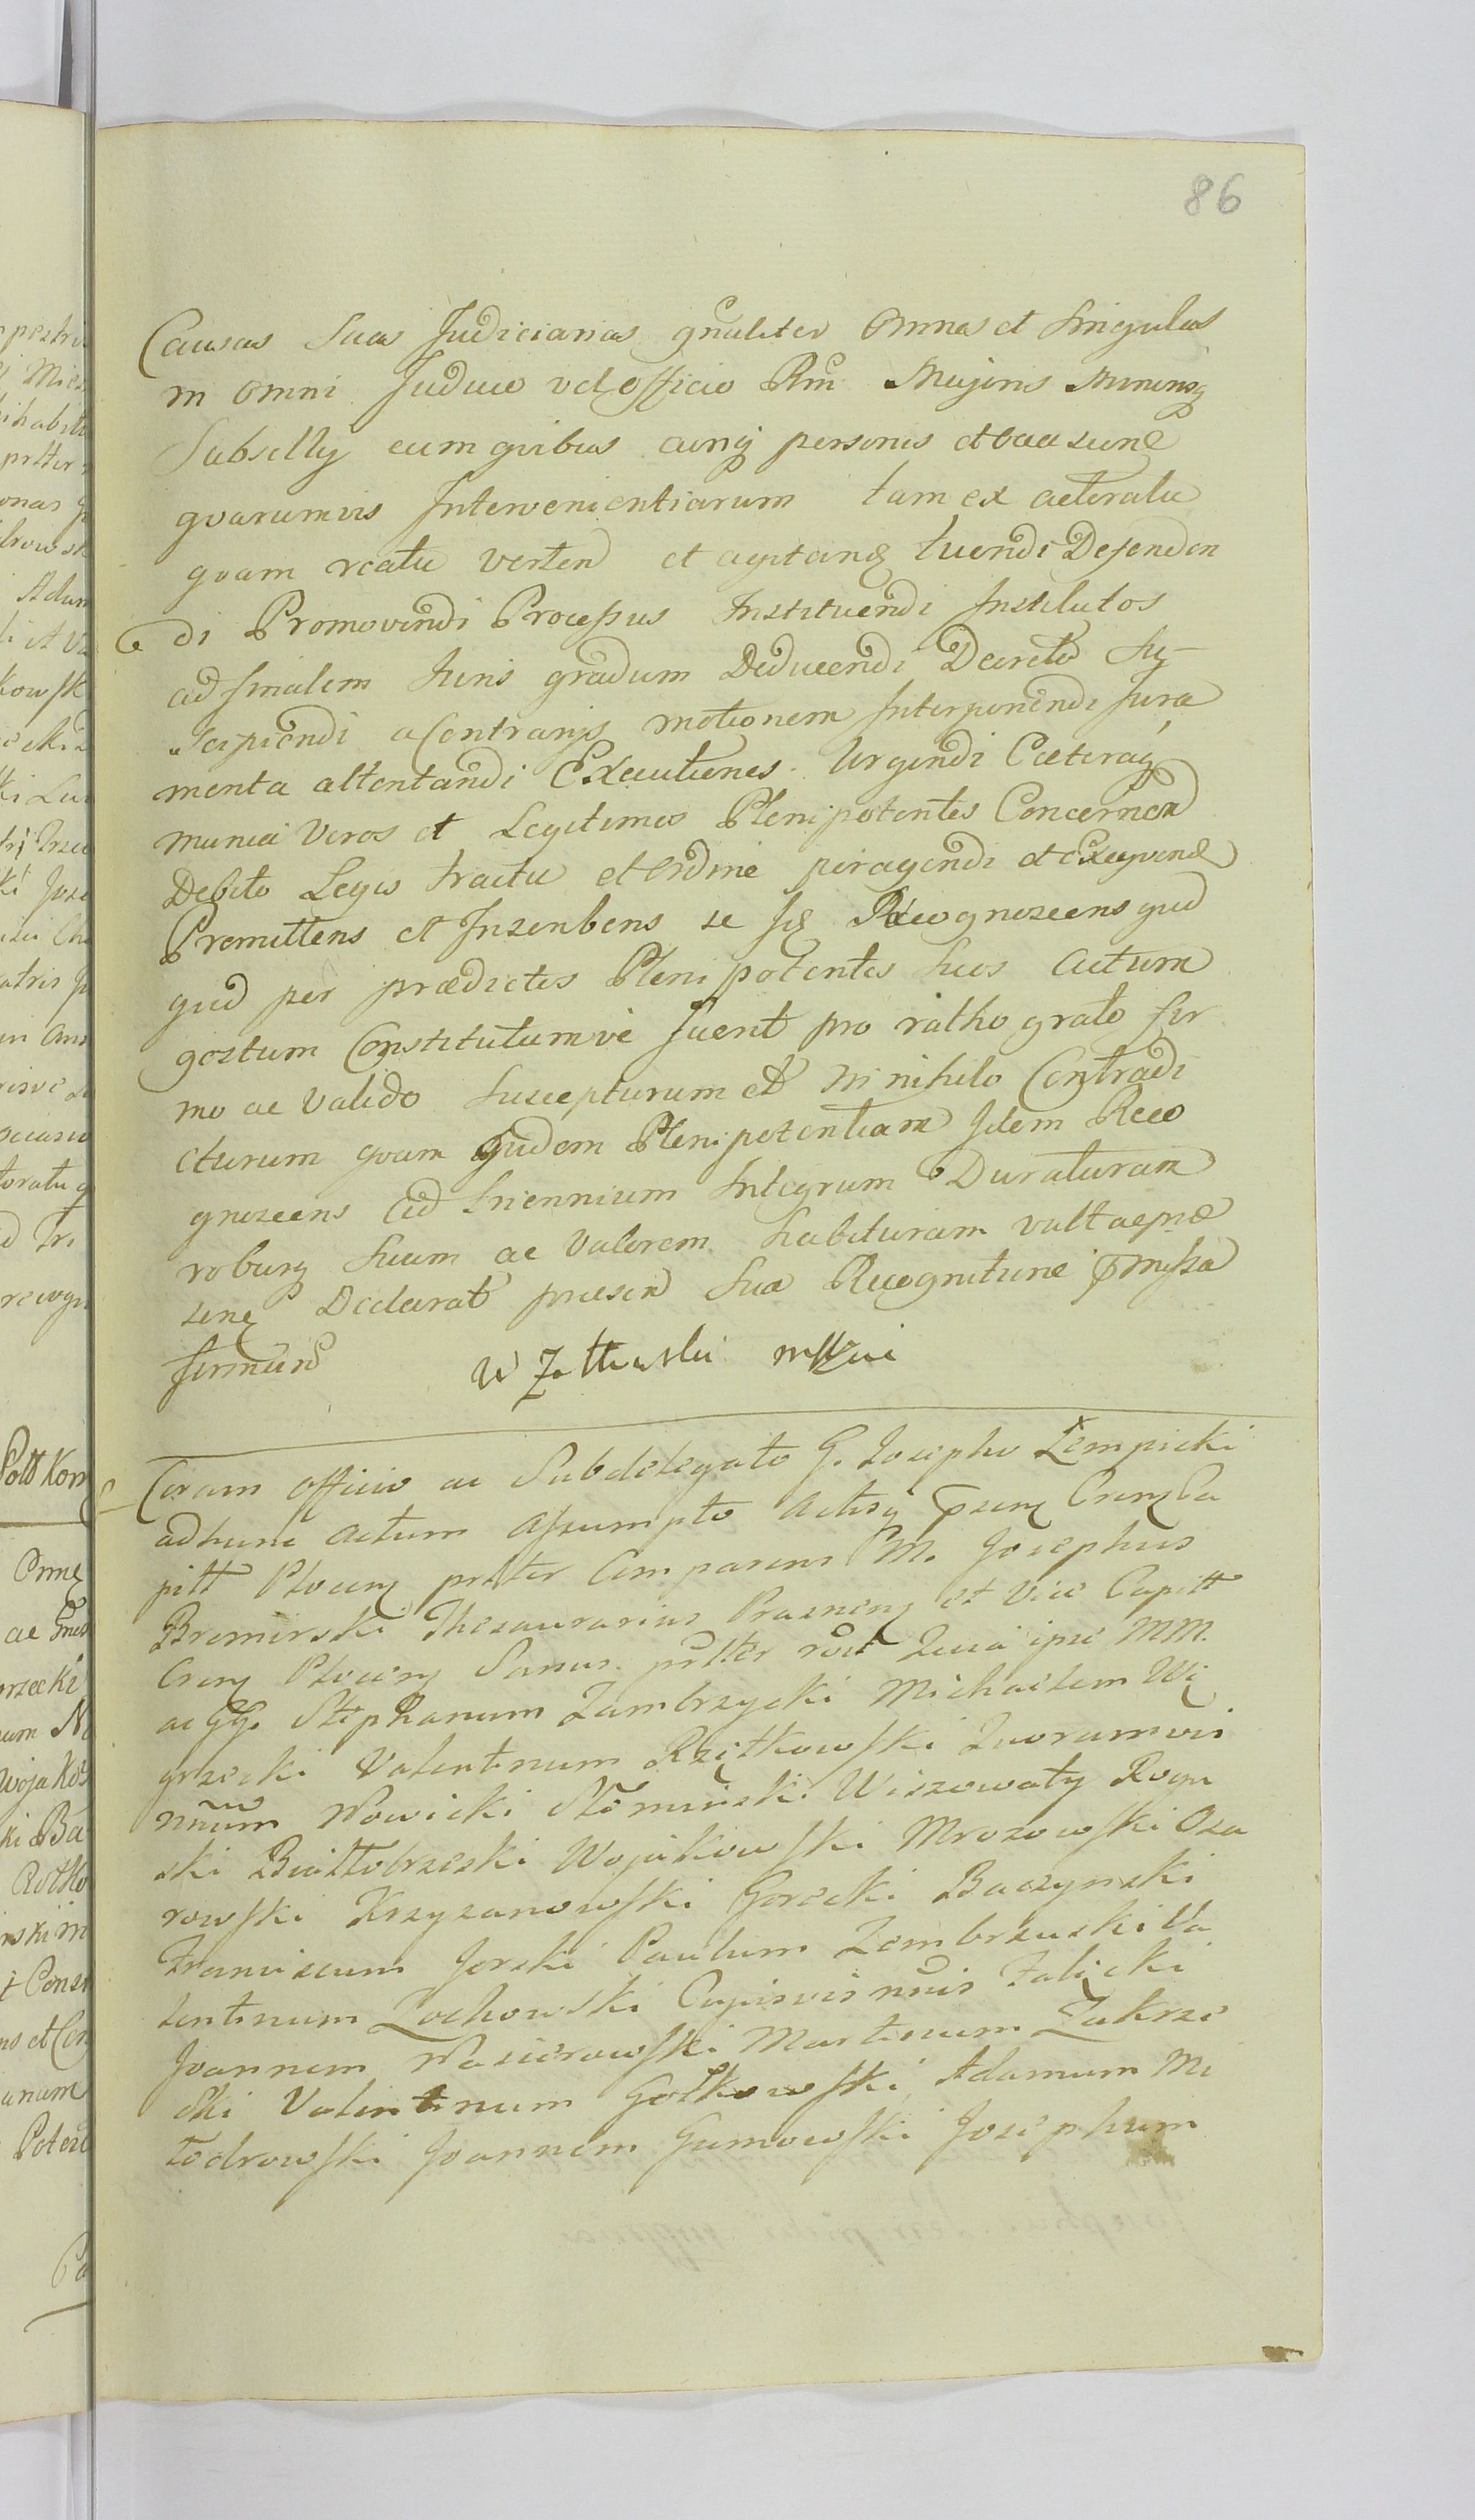 86
Causas Suas Judiciarias gnaliter Omnes et Singulas
in omni Judicio vel officio Rni Majoris Minorisq
Subselly cum quibus cunq personis et
quarumvis Intervenientiarum tam ex actoratu
quam reatu verten et agitan tuendi Defenden
di Promovendi Processus Instituendi Institutos
ad finalem Juris gradum Deducendi Decreta Su-
scipiendi a Contrarys motionem Interponendi Jura
menta attentandi Executiones Urgendi Caeteraq
munia Veros et Legitimos Plenipotentes Concernen
Debito Legis tractu et ordine peragendi et Exequend
Promittens et Inscribens se Recognoscens quid
quid per praedictos Plenipotentes Suos actum
gestum Constitutumve fuerit pro ratho grato fir
mo ac valido Suscepturum et in nihilo Contradi
cturum quam quidem Plenipotentiam Idem Reco
gnoscens ad triennium Integrum Duraturam
roburq Suum ac Valorem habiturum vult ac prae
senq Declarat praesen Sua Recognitione pmissa
firman
W Zołtowski mppia
Coram officio ac Subdelegato G. Josepho Lempicki
ad hunc actum assumpto Actisq Crenq Ca
pitt Plocenq prlter Comparens M. Josephus
Bromirski Thesaurarius Prasnenq et Vice Capitt
Crenq Plocenq Sanus prlter rcit Quia ipse MM.
ac GG. Stephanum Zambrzycki Michaelem Wę
grzecki Valentinum Rzętkowski Quorumvis
nnum Nowicki Słominski Wiszowaty Rogu
ski Białłobrzeski Wojakowski Mrozowski Oza
rowski Krzyzanowski Gorecki Baczynski
Franciscum Gorski Paulum Zembrzuski Va
lentinum Zochowski Cujusvis nnis Falęcki
Joannem Wasierowski Martinum Zakrze
ski Valentinum Gołkowski Adamum Mi
łodrowski Joannem Gumowski Josephum